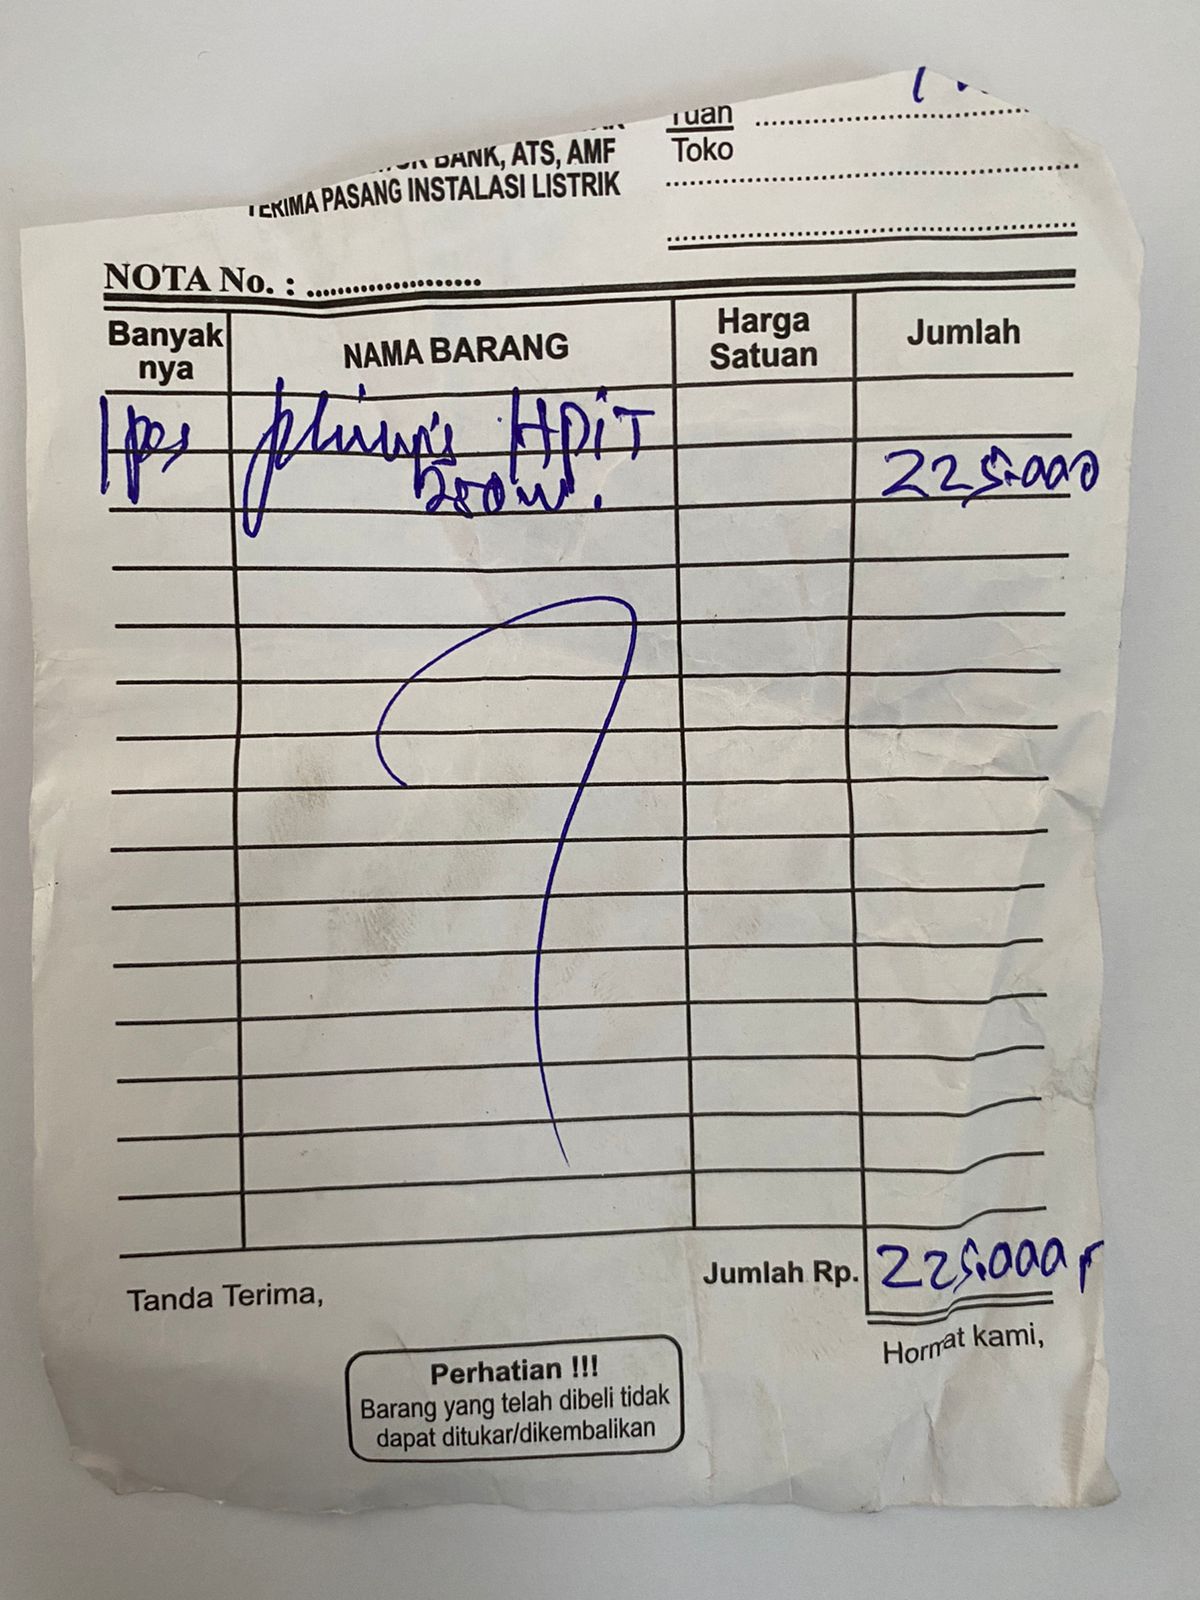 BANK, ATS, AMF
TERIMA PASANG INSTALASI LISTRIK
Tuan
Toko
NOTA No. : ....................
Banyak nya
NAMA BARANG
Harga Satuan
Jumlah
1 pcs philip's HPiT 225.000
250w.
Jumlah Rp. 225.000
Tanda Terima,
Hormat kami,
Perhatian !!!
Barang yang telah dibeli tidak
dapat ditukar/dikembalikan